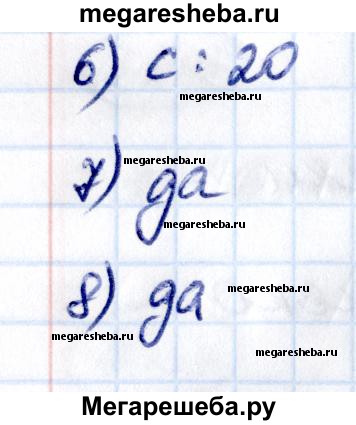 megaresheba.ru
6) c : 20
megaresheba.ru
megaresheba.ru
7) да
megaresheba.ru
megaresheba.ru
8) да
megaresheba.ru
megaresheba.ru
Мегарешеба.ру